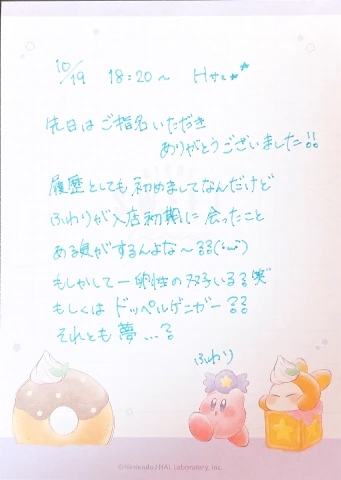 10/19 18:20〜 Hサン
先日はご指名いただき
ありがとうございました!!
履歴としても初めましてなんだけど
ふわりが入店初期に会ったこと
ある気がするんよな〜??(･ω･)
もしかして一卵性の双子いる??笑
もしくはドッペルゲンガー??
それとも夢...?
ふわり
©Nintendo / HAL Laboratory, Inc.